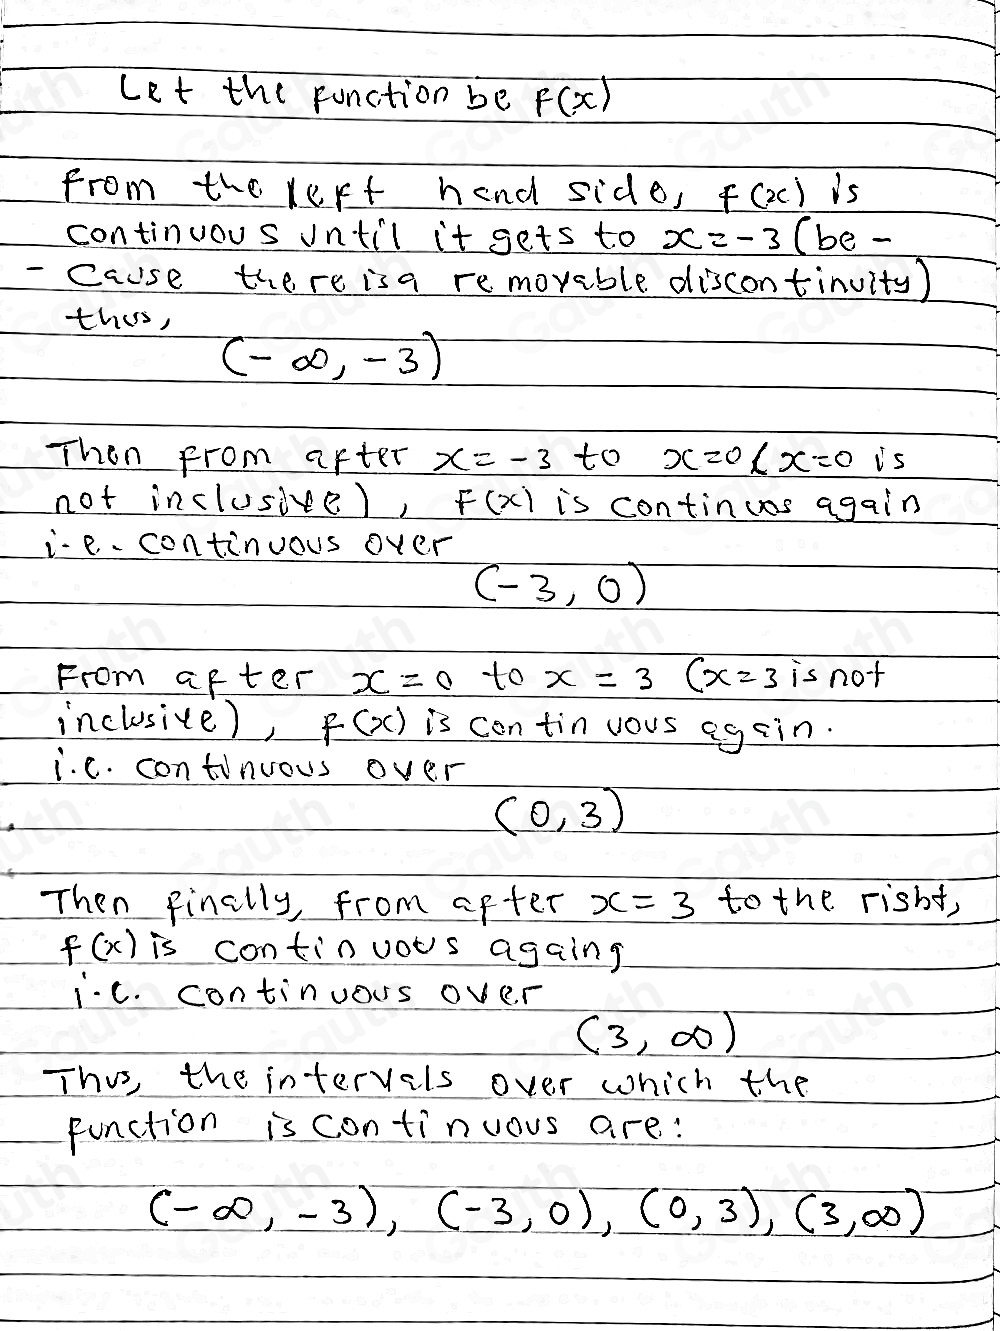 Let the function be f(x)
from the left hand side, f(x) is
continuous until it gets to x=-3 (be-
- cause there is a removable discontinuity)
thus,
(-∞, -3)
Then from after x=-3 to x=0 (x=0 is
not inclusive), f(x) is continuos again
i.e. continuous over
(-3, 0)
From after x=0 to x=3 (x=3 is not
inclusive), f(x) is continuous again.
i.e. continuous over
(0,3)
Then finally, from after x=3 to the right,
f(x) is continuous again,
i.e. continuous over
(3, ∞)
Thus, the intervals over which the
function is continuous are:
(-∞, -3), (-3, 0), (0, 3), (3, ∞)